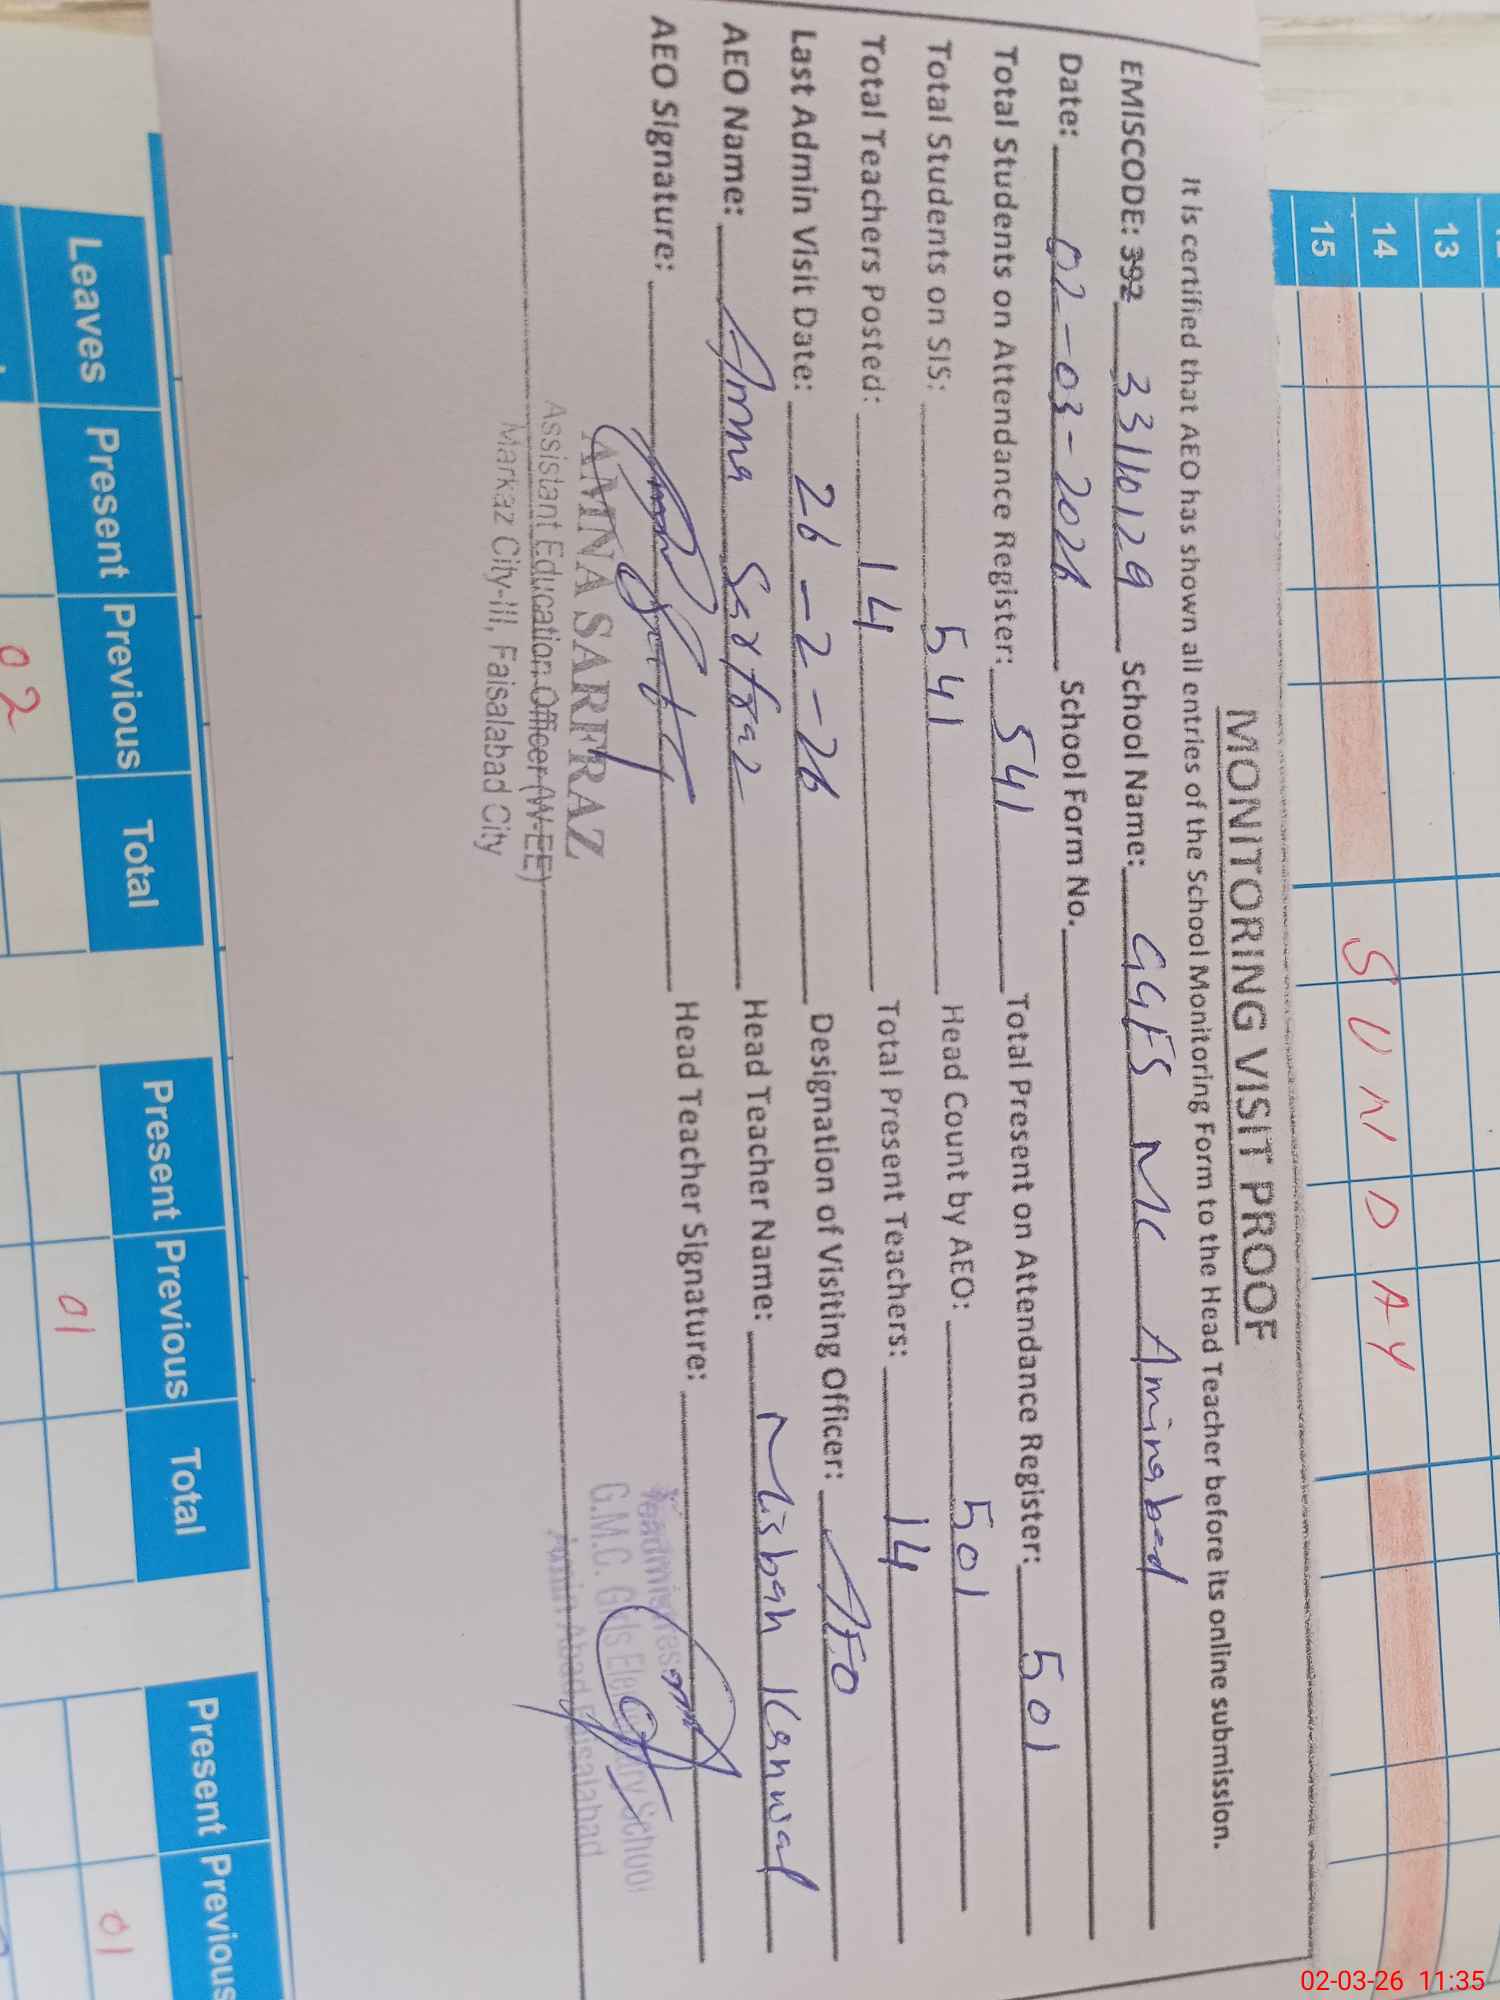 MONITORING VISIT PROOF
It is certified that AEO has shown all entries of the School Monitoring Form to the Head Teacher before its online submission.
EMISCODE: 392 33110129 School Name: GGES MC Aminabad
Date: 02-03-2026 School Form No.
Total Students on Attendance Register: 541 Total Present on Attendance Register: 501
Total Students on SIS: 541 Head Count by AEO: 501
Total Teachers Posted: 14 Total Present Teachers: 14
Last Admin Visit Date: 26-2-26 Designation of Visiting Officer: AEO
AEO Name: Amna Sarfraz Head Teacher Name: Misbah Kanwal
AEO Signature: Head Teacher Signature:
AMNA SARFRAZ
Assistant Education Officer (W-EE)
Markaz City-III, Faisalabad City
Headmistress
G.M.C. Girls Elementary School
Amin Abad Faisalabad
13
14
15
SUNDAY
Leaves Present Previous Total Present Previous Total Present Previous
02 01 01
02-03-26 11:35